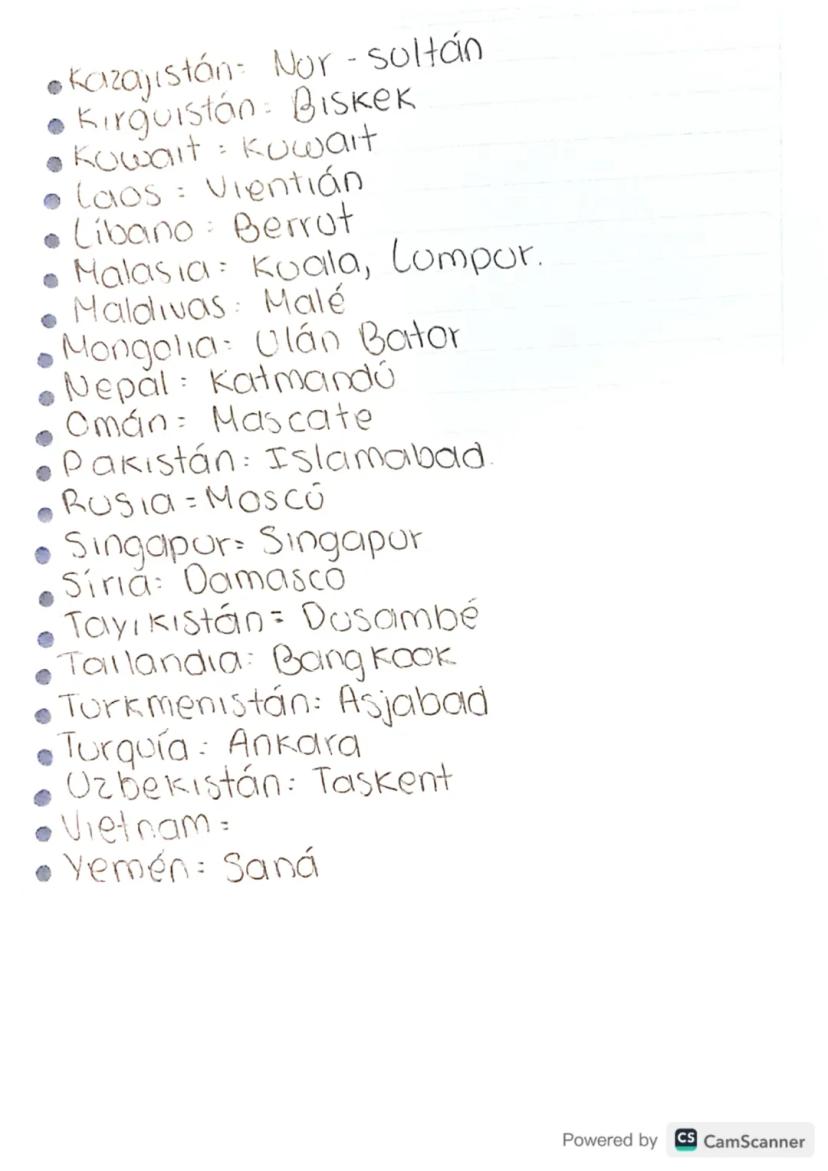 Kazajistán: Nur-sultán
Kirguistán: Biskek
Kuwait: Kuwait
Laos: Vientián
Líbano: Berrut
Malasia: Kuala, Lumpur.
Maldivas: Malé
Mongolia: Ulán Bator
Nepal: Katmandú
Omán: Mascate
Pakistán: Islamabad.
Rusia: Moscú
Singapur: Singapur
Siria: Damasco
Tayikistán: Dusambé
Tailandia: Bangkook
Turkmenistán: Asjabad
Turquía: Ankara
Uzbekistán: Taskent
Vietnam:
Yemén: Saná
Powered by CS CamScanner